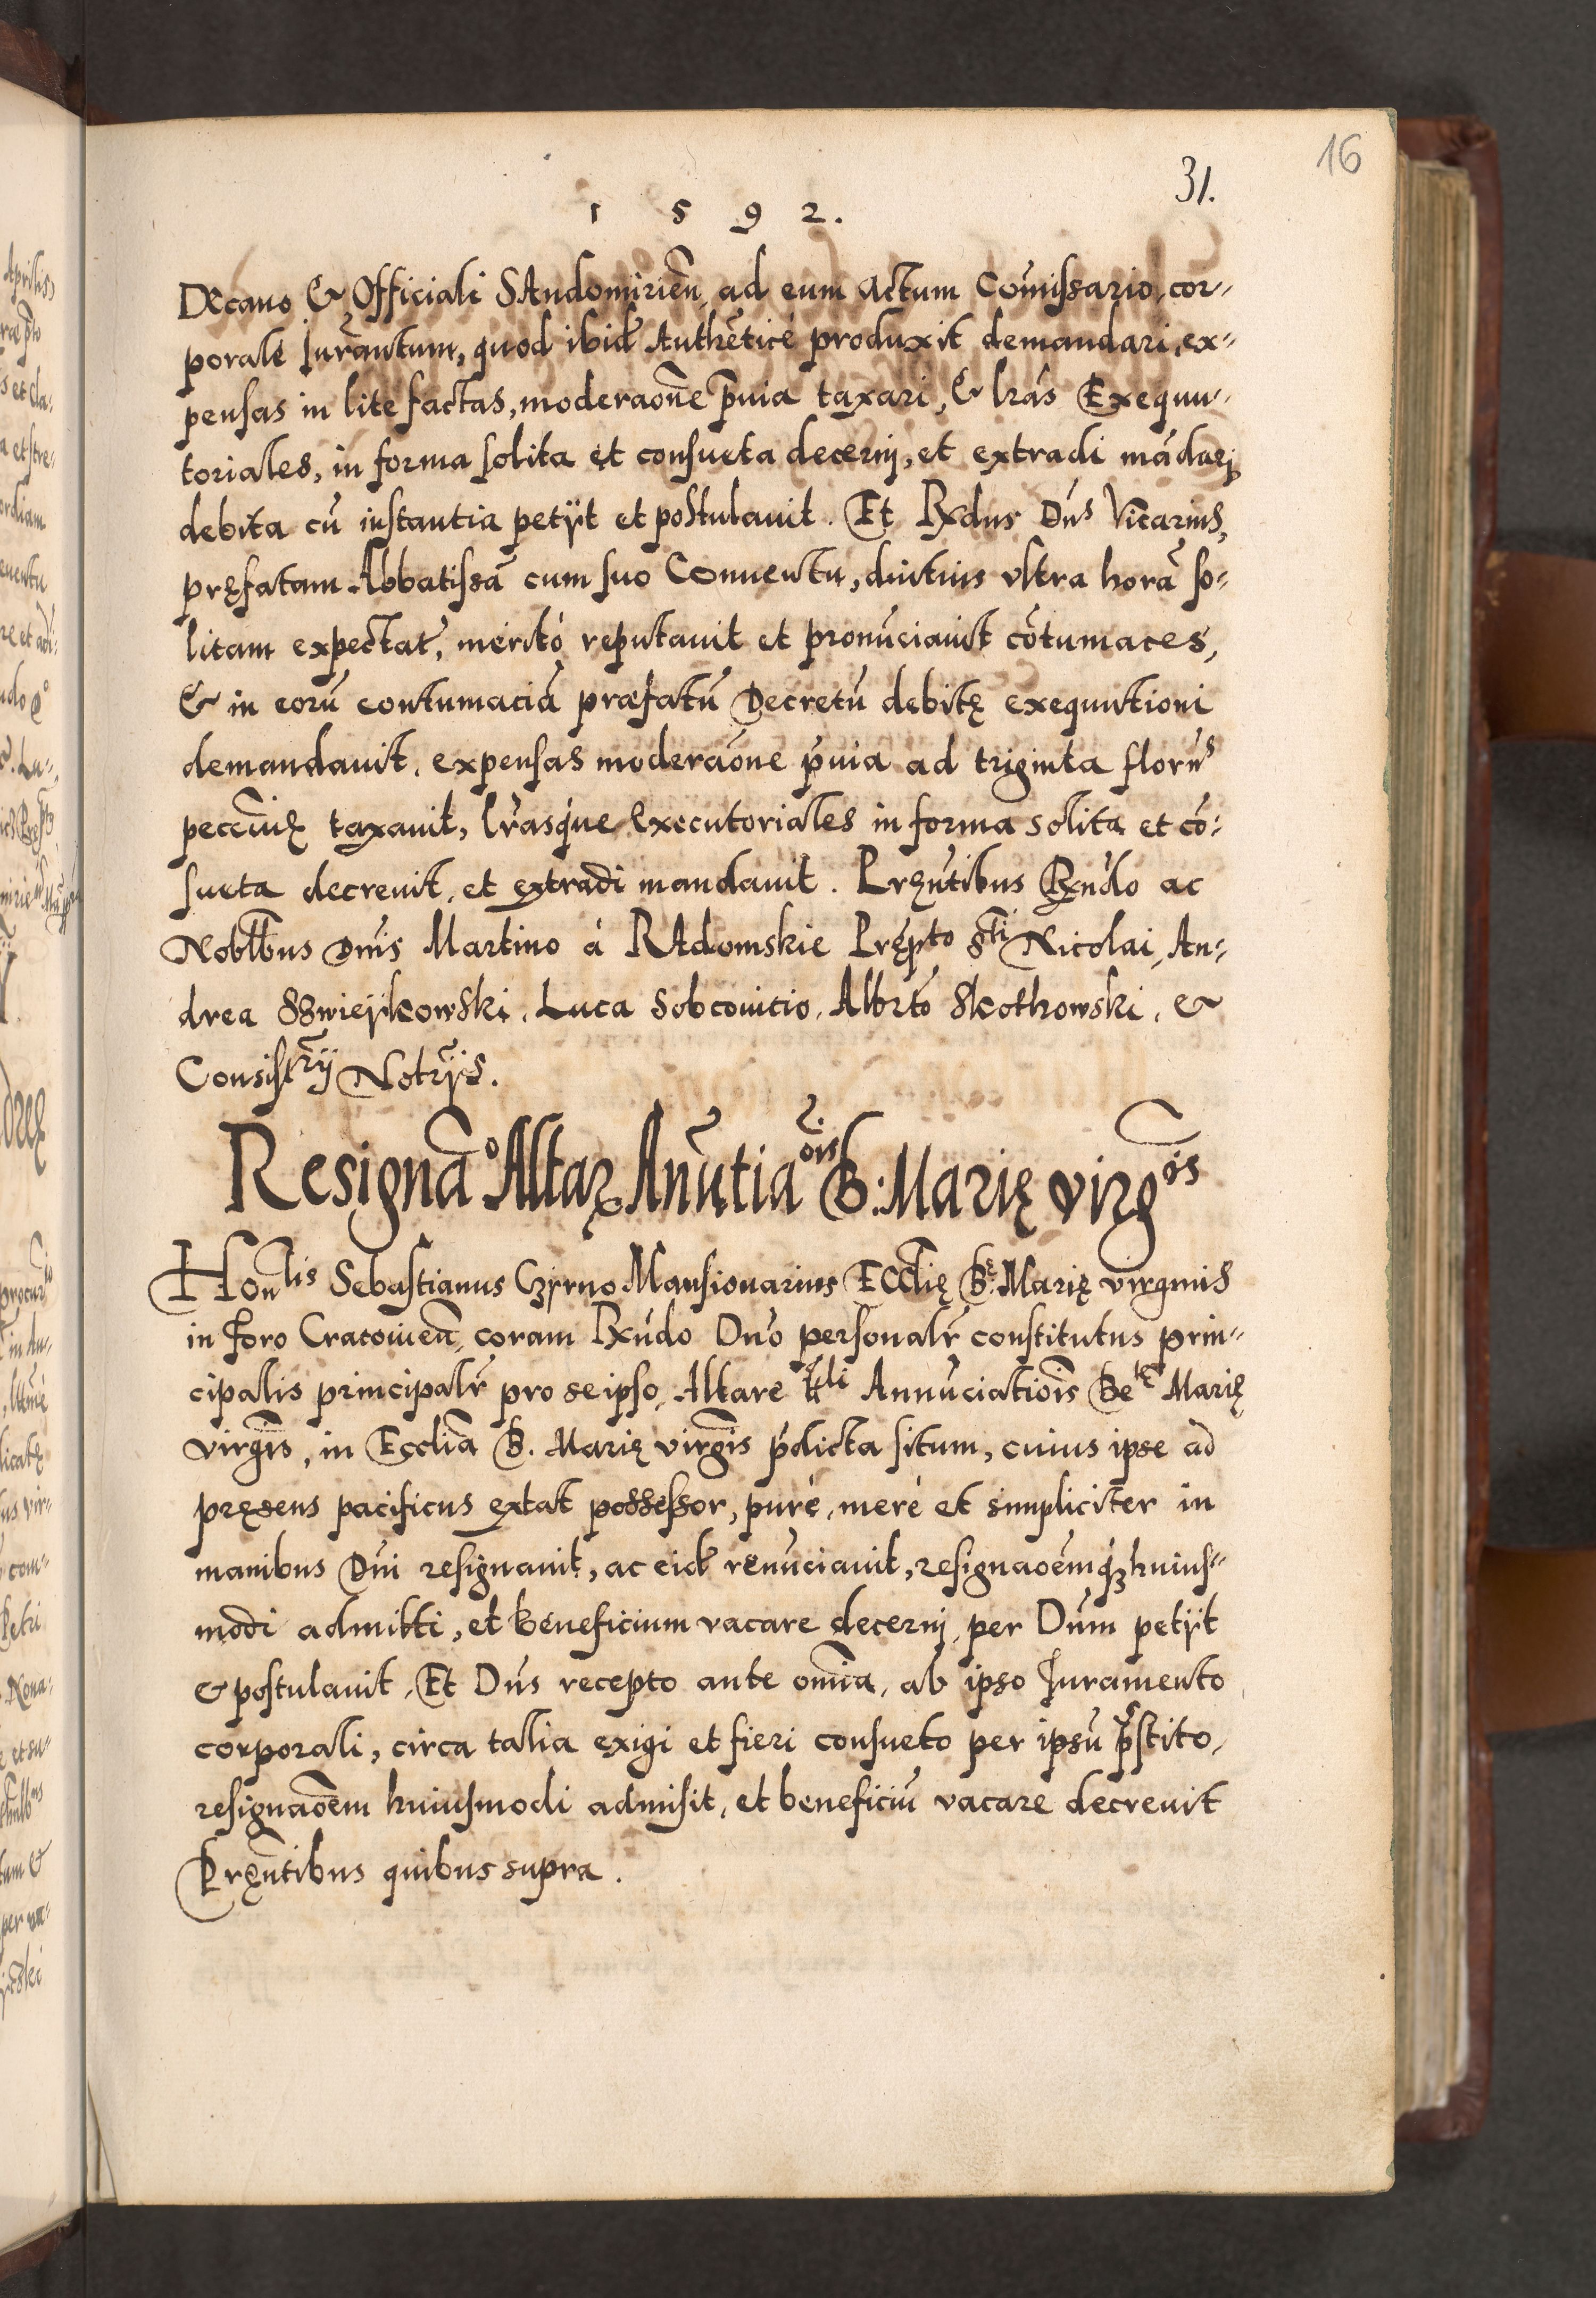 16
31.
1 5 9 2.
Decano & Officiali SAndomirien̄, ad eum actum Com̄issario, cor-
porale Iurãntum, quod ibid̃ Authẽticè produxit demandari, ex-
pensas in lite factas, moderaōne p̄uia taxari, & lr̃as Exequu-
toriales, in forma solita et consueta decernj, et extradi mãdarj
debita cũ instantia petijt et postulauit. Et Rxdus Dñs Vicarius,
pręfatam Abbatissã cum suo Conuentu, diutius vltra horã so-
litam expectat̃, meritò reputauit et pronũciauit cõtumaces,
& in eorũ contumaciã præfatũ Decretũ debitę exequutioni
demandauit, expensas moderaōne p̃uia ad triginta florñs
taxauit, lr̃asq́ue Executoriales in forma solita et cõ-
sueta decreuit, et extradi mandauit. Pręñtibus Rxñdo ac
Nobl̃bus Dñis Martino à RAdomskie Pręp̃to Sti Nicolai, An-
drea SSwieijkowski, Luca Sobcouicio, Albr̃to Skotkowski, &
Consist̃rij Notr̃ijs.
Resignão Altar̃ Anũtiaōis B: Marię virgōis
Honlis Sebastianus Czyrno Mansionarius Eccl̃ię Bę Marię virginis
in foro Cracouien̄, coram Rxñdo Dño personalr̃ constitutus prin-
cipalis principalr̃ pro se ipso, Altare tt̃li Annũciatiōis Betę Marię
virg̃is, in Eccl̃ia B. Marię virg̃is p̃dicta situm, cuius ipse ad
pręsens pacificus extat possessor, purè, merè et simpliciter in
manibus Dñi resignauit, ac eid̃ renũciauit, resignaōemq́ꝫ huius-
modi admitti, et beneficium vacare decernj, per Dñm petijt
& postulauit, Et Dñs recepto ante omĩa, ab ipso Iuramento
corporali, circa talia exigi et fieri consueto per ipsũ p̃stito,
resignaōem huiusmodi admisit, et beneficiũ vacare decreuit
Pręñtibus quibus supra.